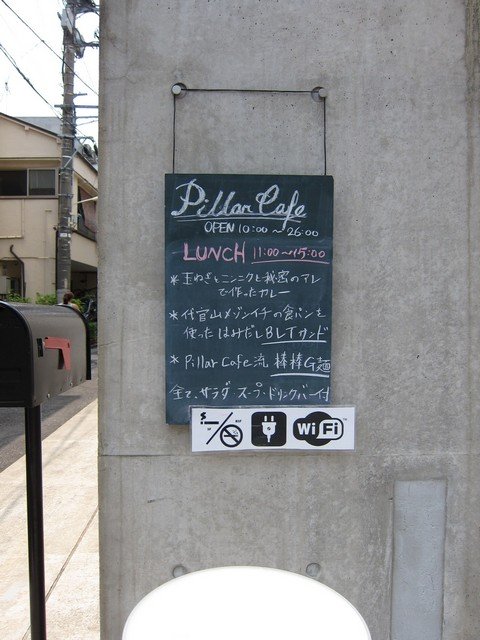 Pillar Cafe
OPEN 10:00～26:00
LUNCH 11:00～15:00
* 玉ねぎとニンニクと秘密のアレ
で作ったカレー
* 代官山メゾンイチの食パンを
使ったはみだしBLTサンド
* Pillar Cafe流 棒棒G麺
全て、サラダ・スープ・ドリンクバー付
Wi Fi